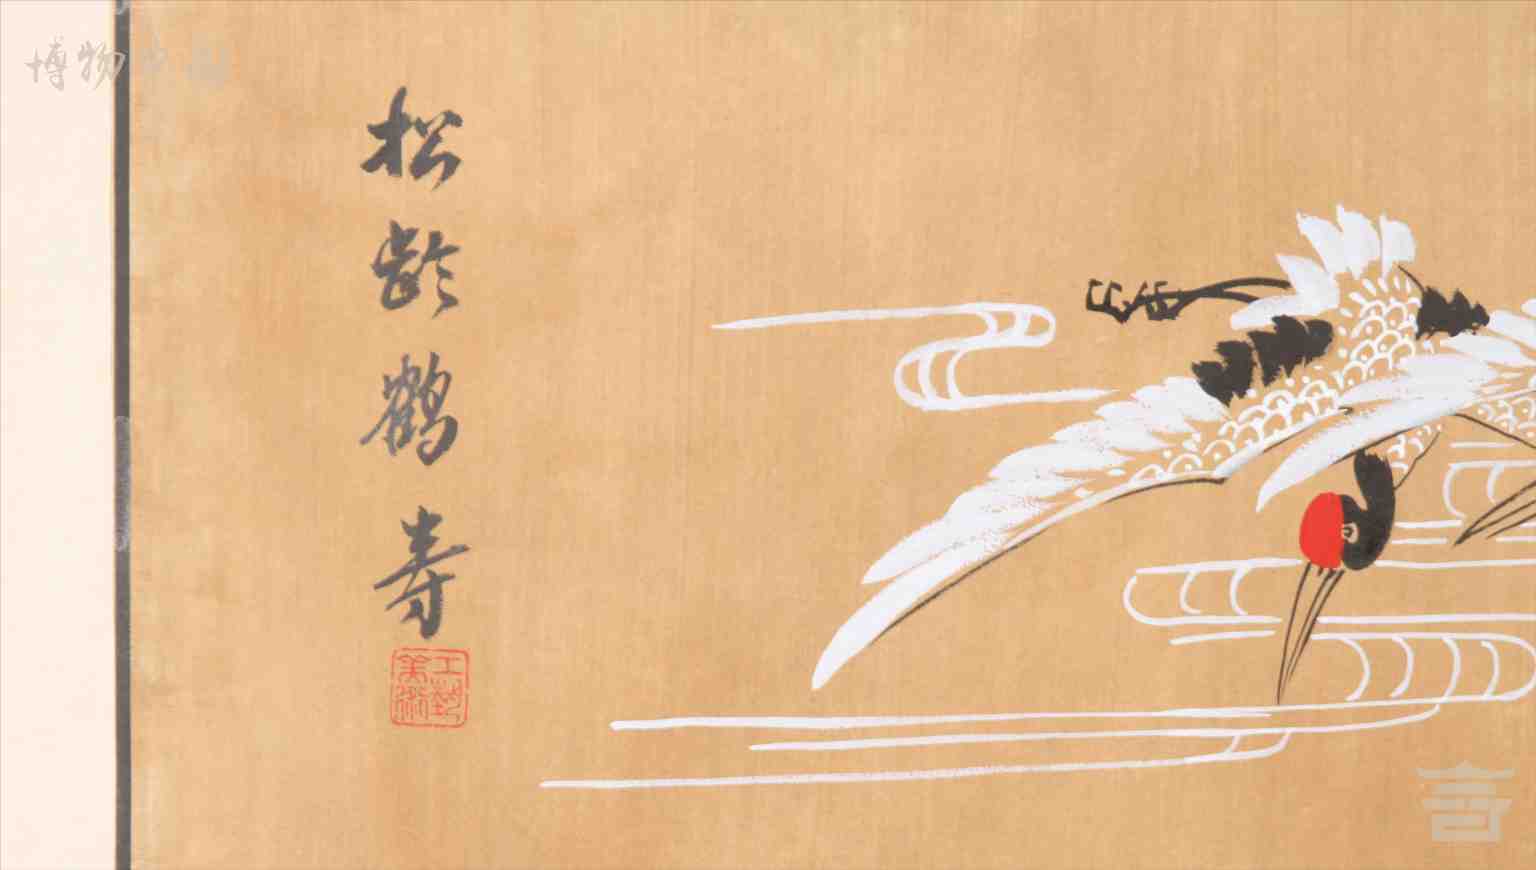 博物中国
松龄鹤寿
工艺美术